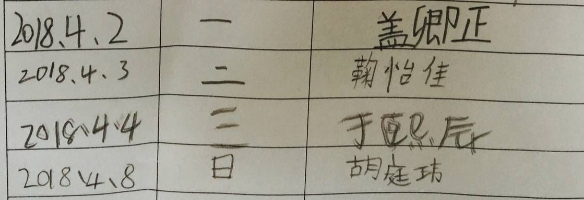 2018.4、2 一 盖卿正
2018、4、3 二 鞠怡佳
2018、4、4 三 于熙辰
2018、4、8 日 胡庭玮